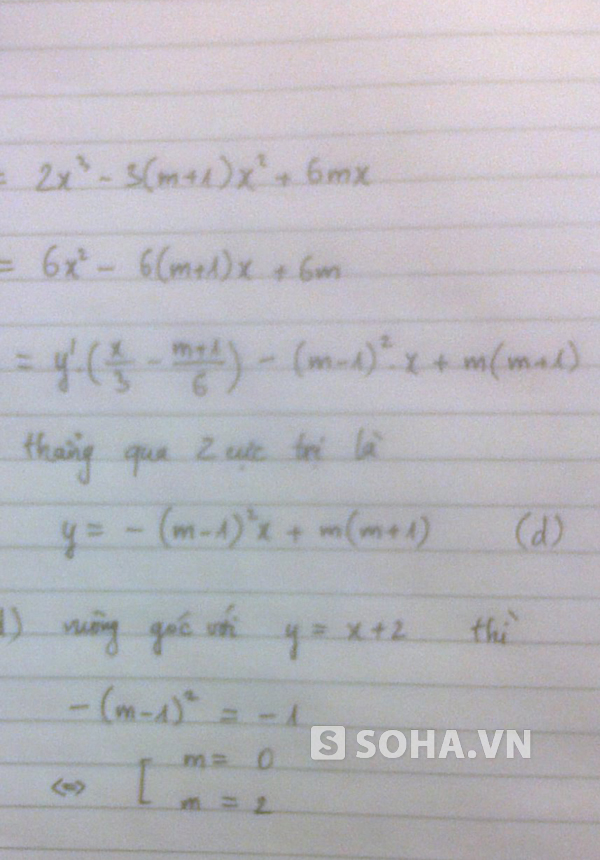 = 2x³ - 3(m+1)x² + 6mx
= 6x² - 6(m+1)x + 6m
= y'.(x/3 - (m+1)/6) - (m-1)².x + m(m+1)
thẳng qua 2 cực trị là
y = - (m-1)²x + m(m+1) (d)
d) vuông góc với y = x+2 thì
-(m-1)² = -1
SOHA.VN
⇔ [ m = 0
m = 2